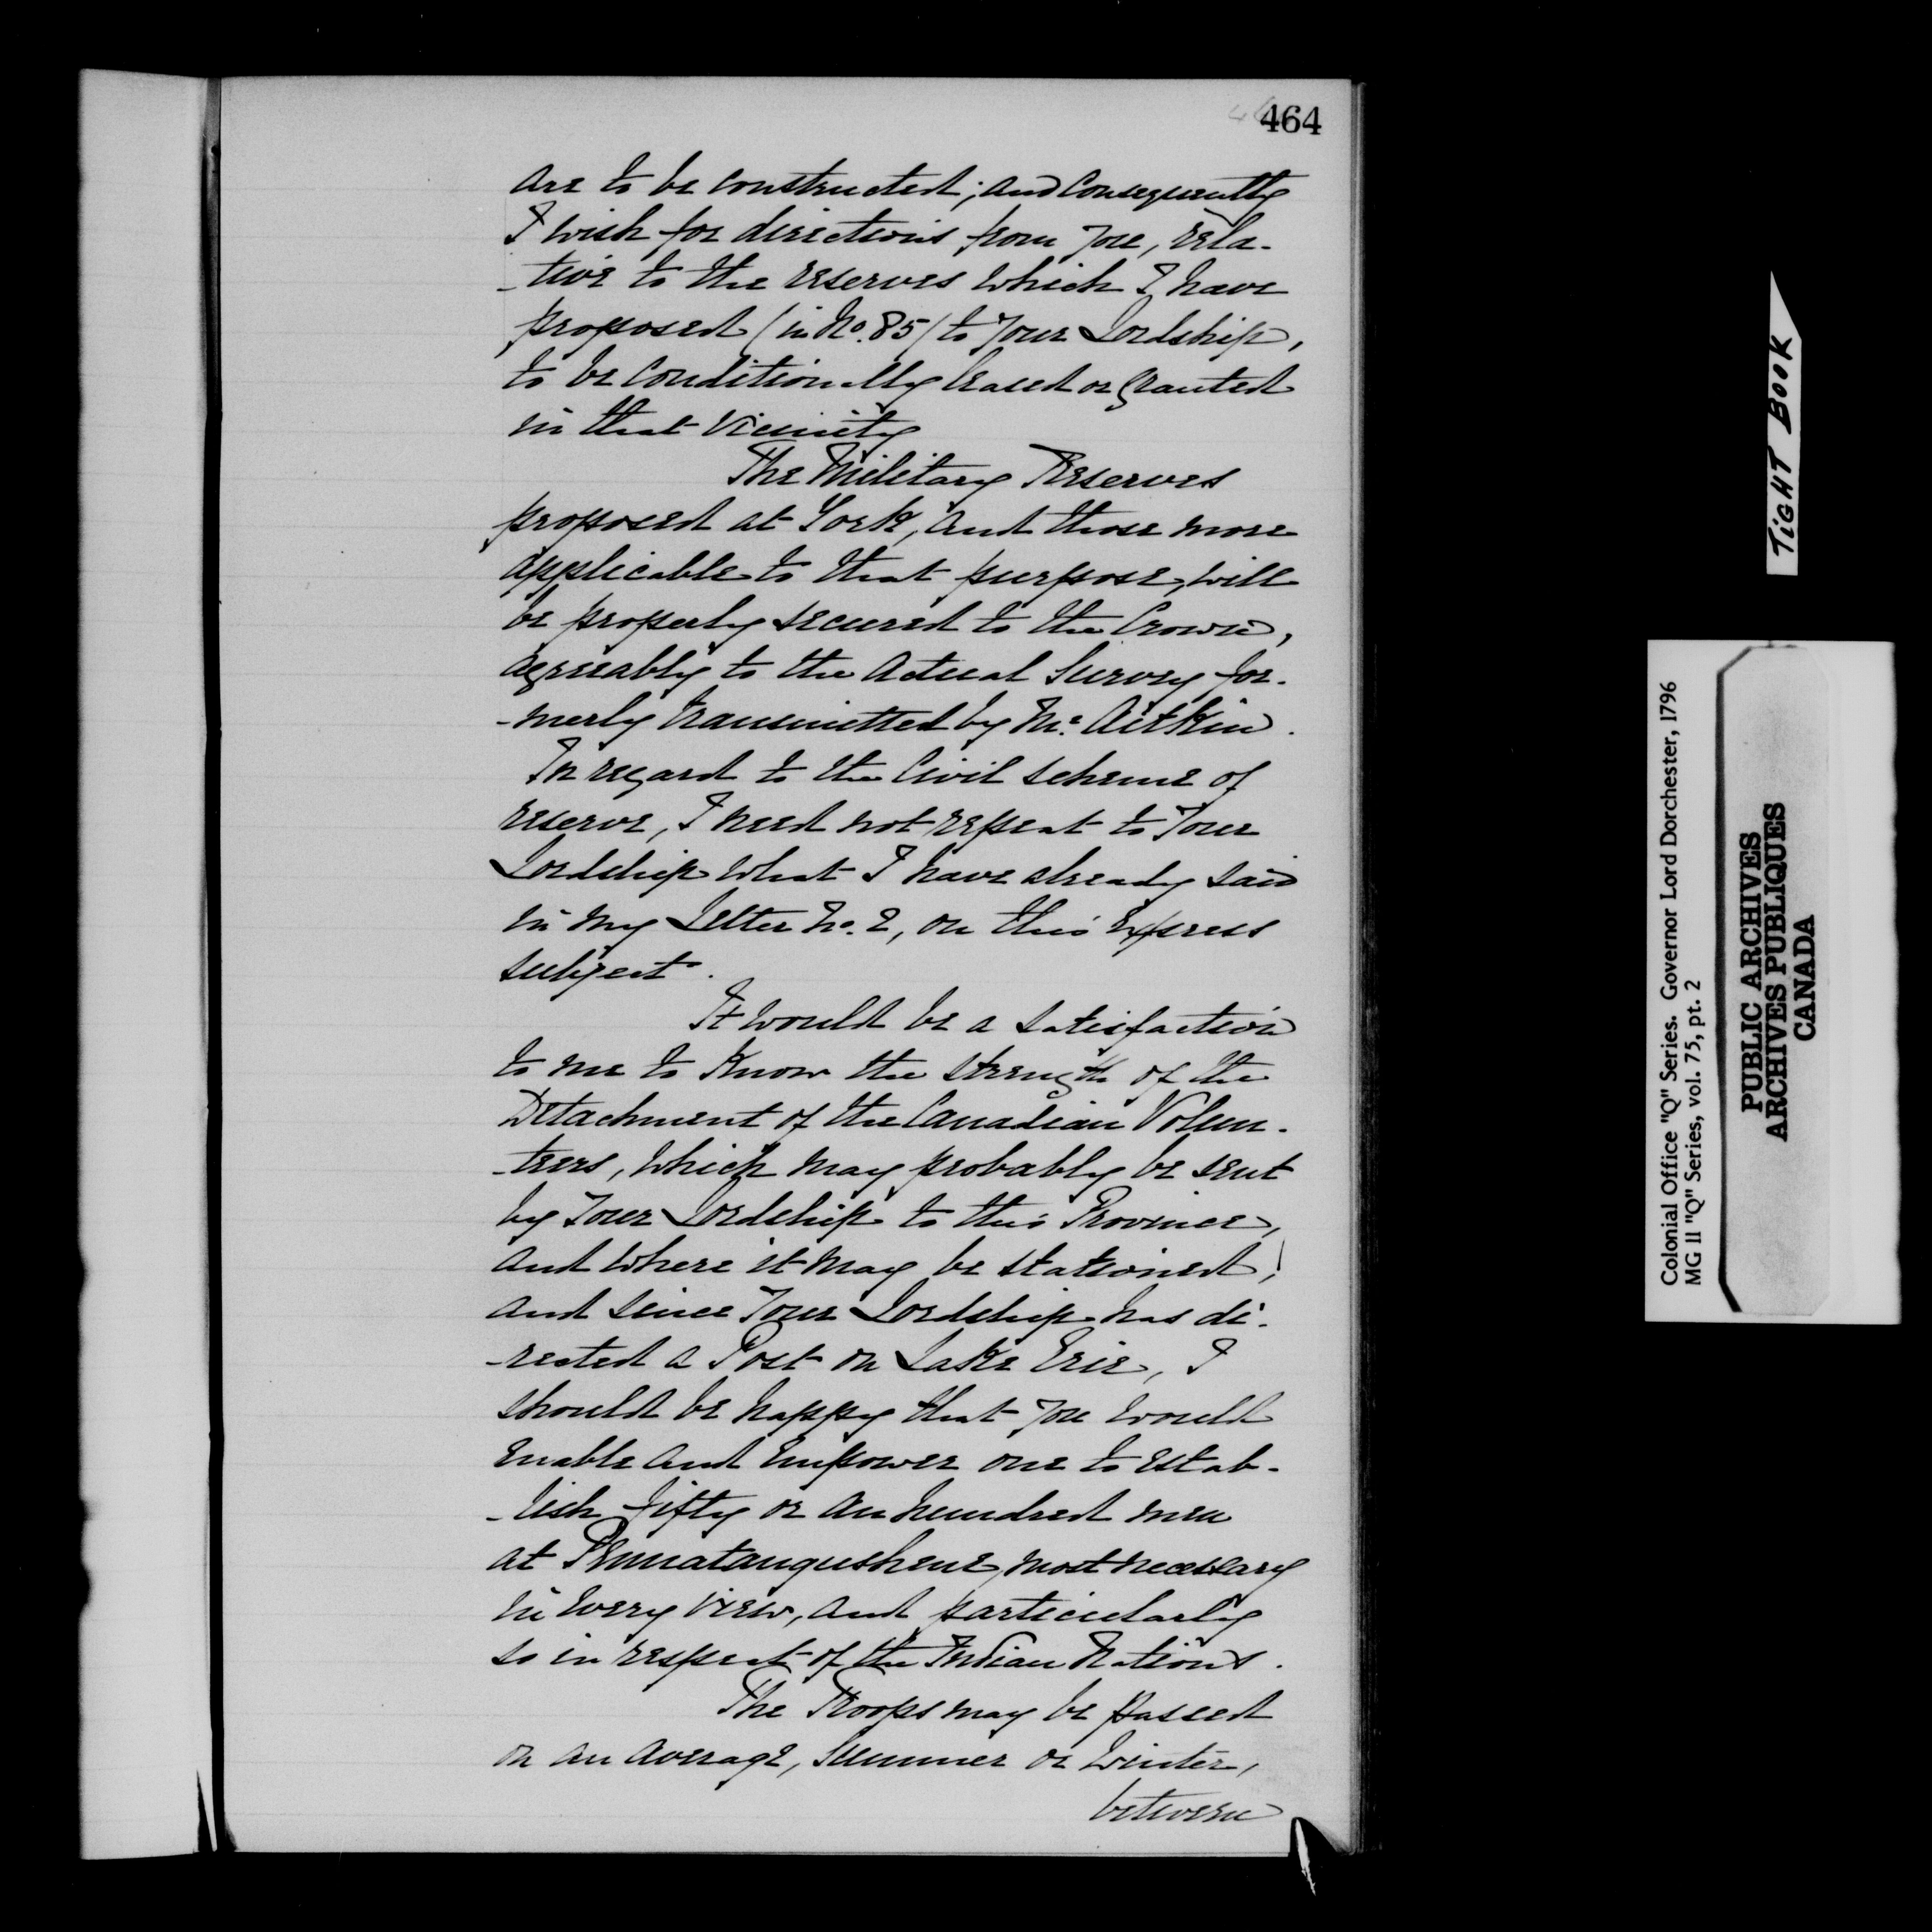 464
are to be constructed; and Consequently
I wish for directions from you, rela-
-tive to the reserves which I have
proposed (in No. 85) to Your Lordship,
to be Conditionally leased or Granted
in that Vicinity
The Military Reserves
proposed at York, and those more
applicable to that purpose, will
be properly secured to the Crown,
agreeably to the Actual Survey for-
-merly transmitted by Mr. Aitkin.
In regard to the Civil scheme of
reserve, I need not repeat to Your
Lordship what I have already said
in my Letter No. 2, on this Express
subject.
It would be a satisfaction
to me to Know the strength of the
Detachment of the Canadian Volun-
-teers, which may probably be sent
by Your Lordship to this Province,
and where it may be stationed;
and since Your Lordship has di-
-rected a Post on Lake Erie, I
should be happy that you would
enable and empower one to estab-
-lish fifty or an hundred men
at Pennatangushene, most necessary
in every view, and particularly
so in respect of the Indian Nations.
The Troops may be passed
on an average, Summer or Winter,
between
TIGHT BOOK
Colonial Office "Q" Series. Governor Lord Dorchester, 1796
MG 11 "Q" Series, vol. 75, pt. 2
PUBLIC ARCHIVES
ARCHIVES PUBLIQUES
CANADA